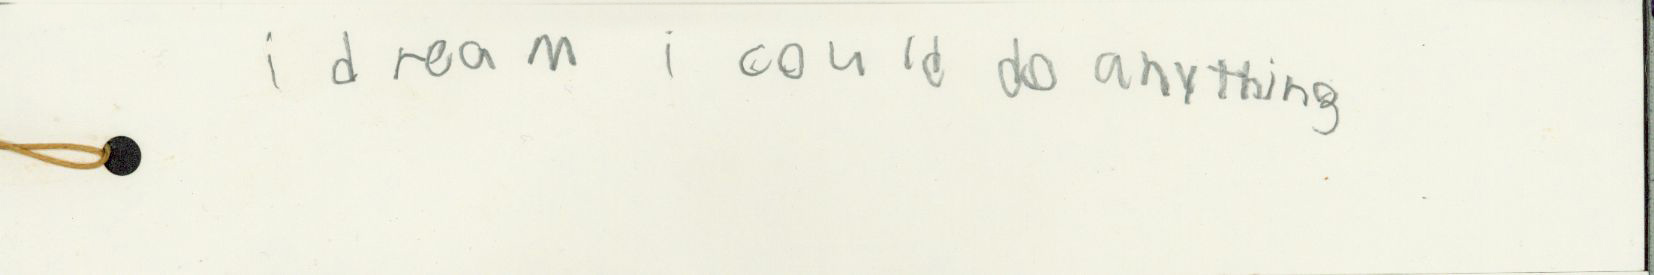 i dream i could do anything